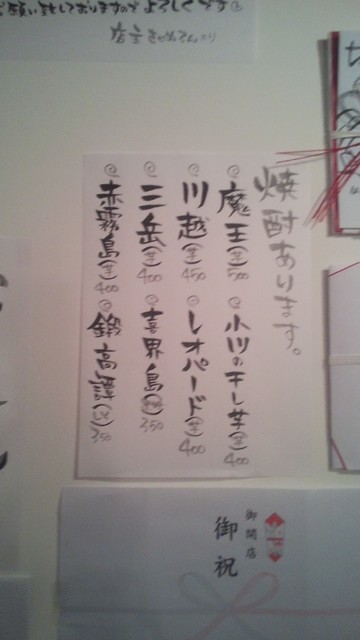 お願い致しておりますのでよろしくです
店主
焼酎あります。
魔王(芋)500
小ツルの干し芋(芋)400
川越(芋)450
レオパード(芋)400
三岳(芋)400
喜界島(黒)350
赤霧島(芋)400
鍛高譚(シソ)350
御開店
御祝